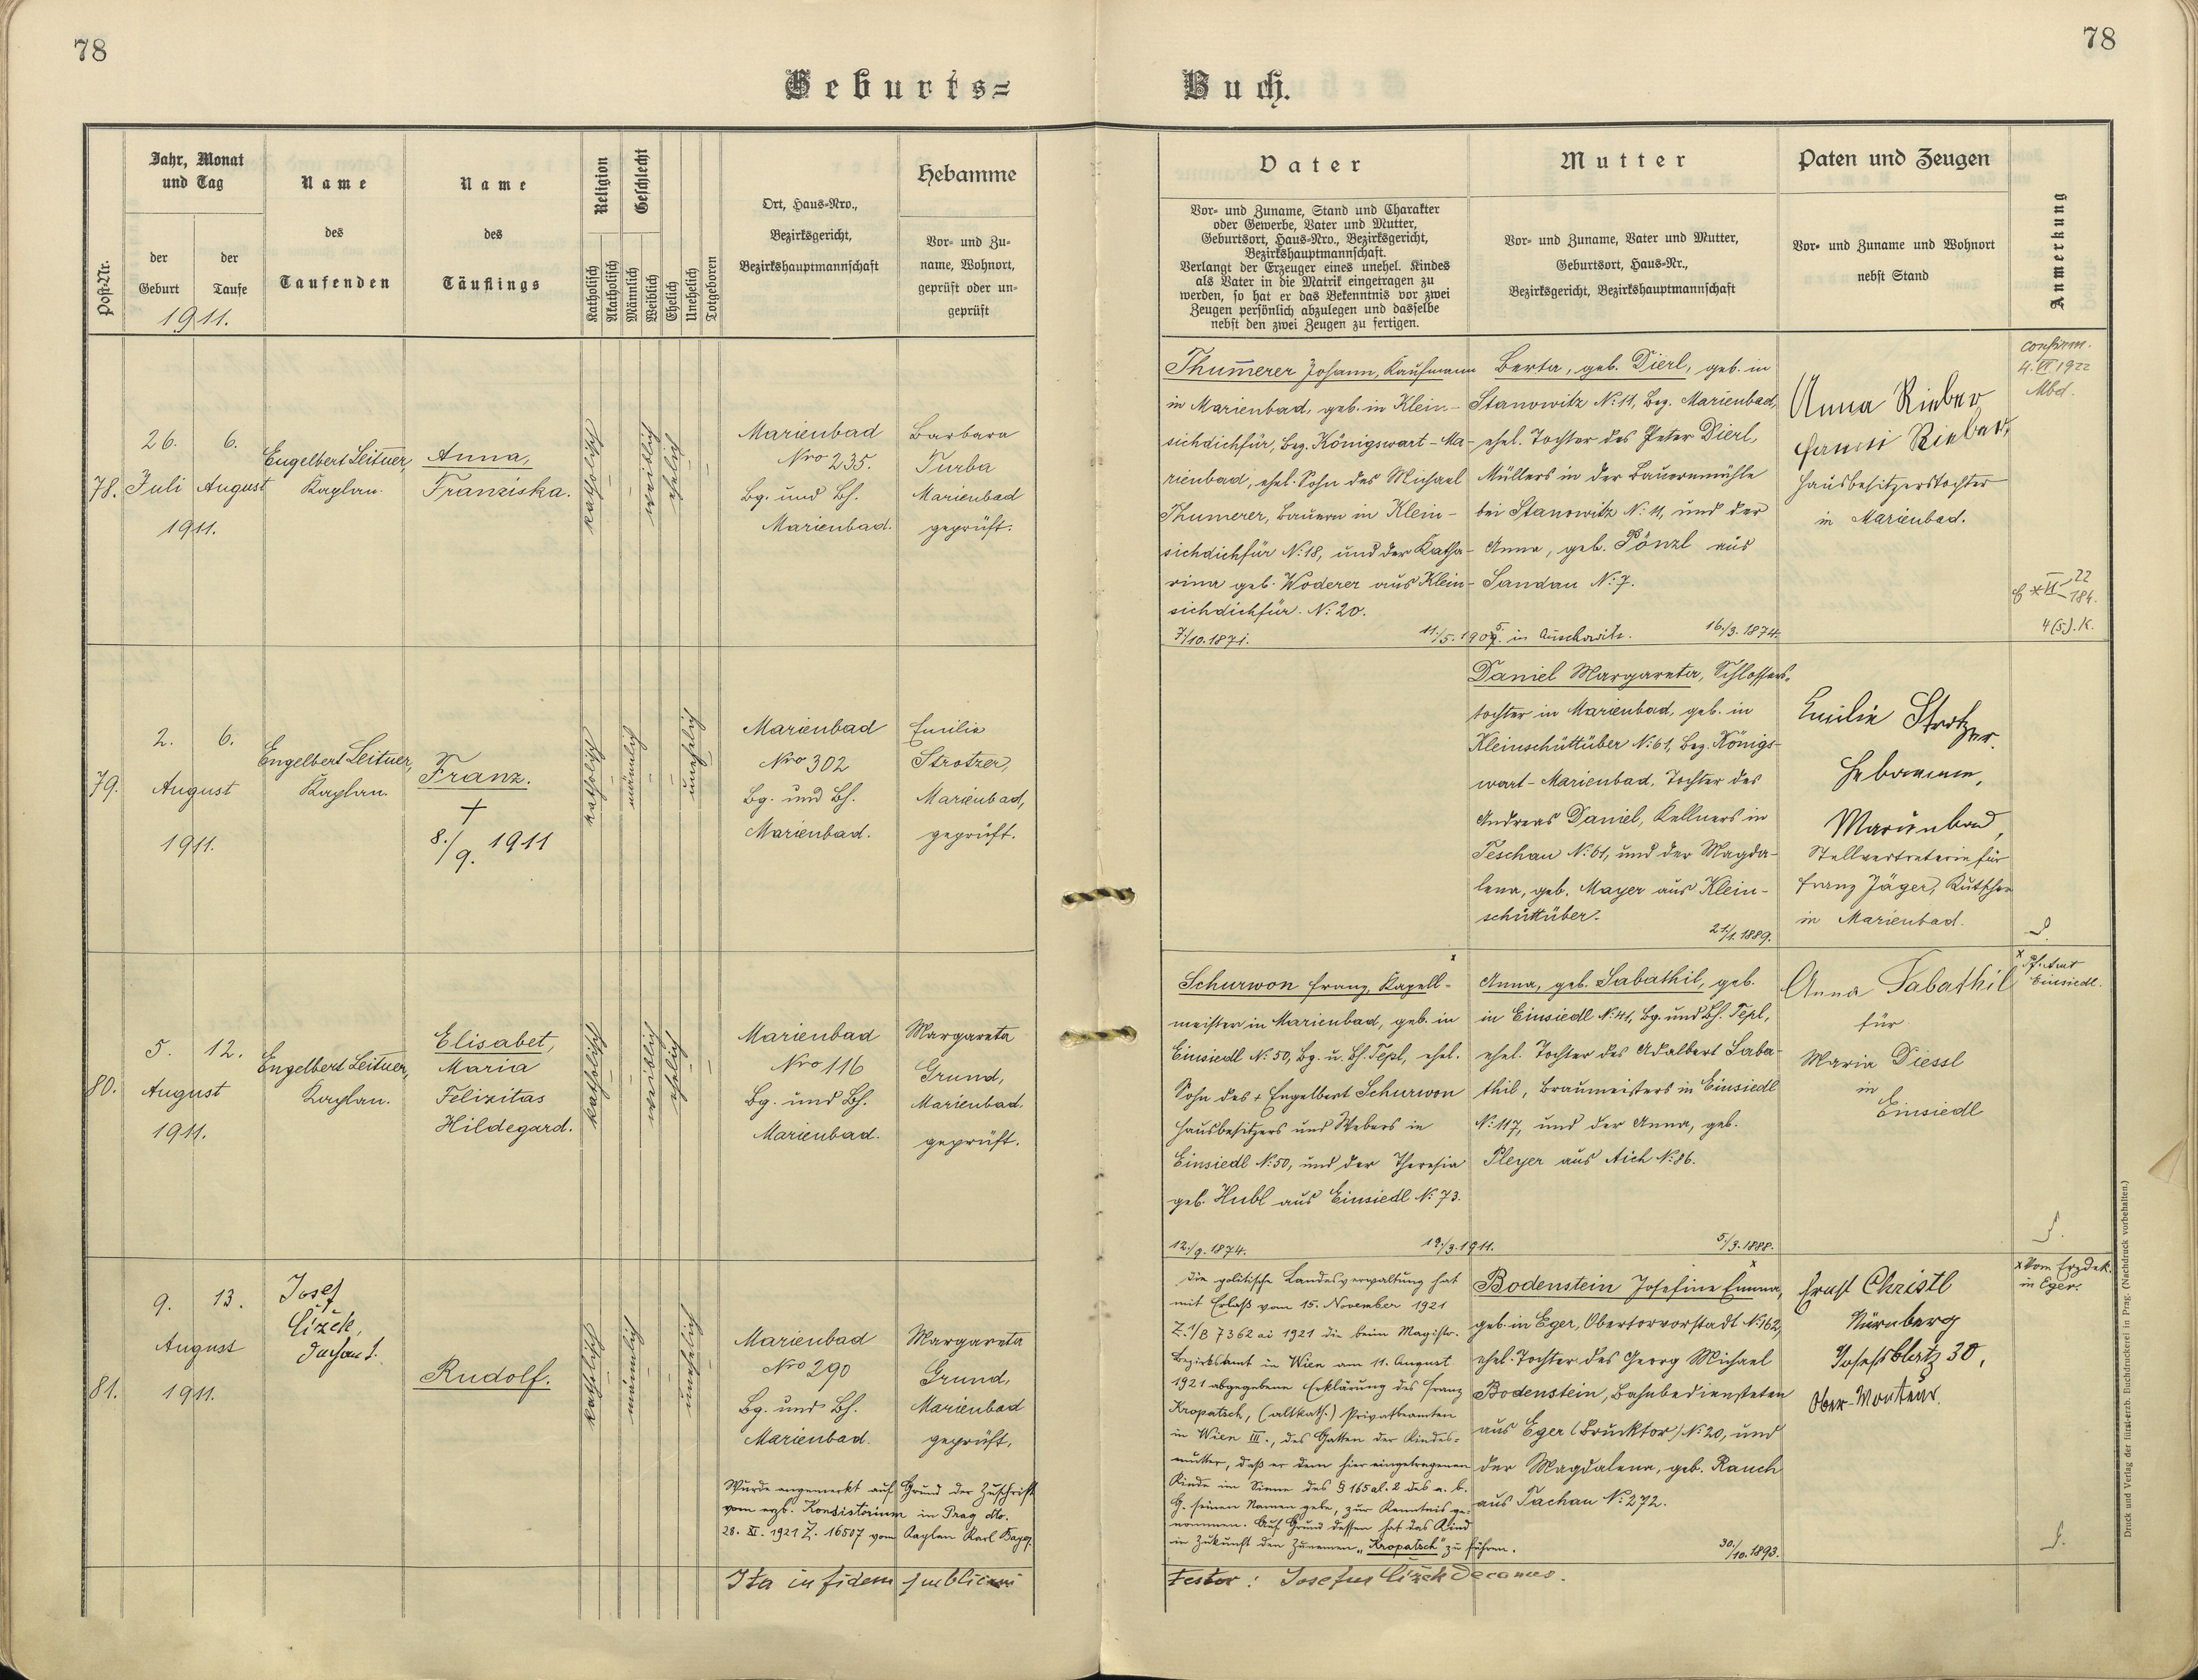 78
78
Geburts=
Buch.
Post-Nr.
Jahr, Monat
und Tag
der
Geburt
der
Taufe
1911.
Name
des
Taufenden
Name
des
Täuflings
Religion
Katholisch
Akatholisch
Geschlecht
Männlich
Weiblich
Ehelich
Unehelich
Totgeboren
Ort, Haus-Nro.,
Bezirksgericht,
Bezirkshauptmannschaft
Hebamme
Vor- und Zu-
name, Wohnort,
geprüft oder un-
geprüft
Vater
Vor- und Zuname, Stand und Charakter
oder Gewerbe, Vater und Mutter,
Geburtsort, Haus-Nro., Bezirksgericht,
Bezirkshauptmannschaft.
Verlangt der Erzeuger eines unehel. Kindes
als Vater in die Matrik eingetragen zu
werden, so hat er das Bekenntnis vor zwei
Zeugen persönlich abzulegen und dasselbe
nebst den zwei Zeugen zu fertigen.
Mutter
Vor- und Zuname, Vater und Mutter,
Geburtsort, Haus-Nr.,
Bezirksgericht, Bezirkshauptmannschaft
Paten und Zeugen
Vor- und Zuname und Wohnort
nebst Stand
Anmerkung
78.
26.
Juli
6.
August
1911.
Engelbert Leitner,
Kaplan.
Anna,
Franziska.
katholisch
weiblich
ehelich
Marienbad
Nro 235.
Bg. und Bh.
Marienbad.
Barbara
Turba
Marienbad
geprüft.
Thumerer Johann, Kaufmann
in Marienbad, geb. in Klein-
sichdichfür, Bez. Königswart-Ma-
rienbad, ehel. Sohn des Michael
Thumerer, Bauern in Klein-
sichdichfür N: 18, und der Katha-
rina geb. Woderer aus Klein-
sichdichfür. N: 20.
7./10. 1871.
11./5. 1905. in Auschowitz.
Berta, geb. Dierl, geb. in
Stanowitz N: 11, Bez. Marienbad,
ehel. Tochter des Peter Dierl,
Müllers in der Bauernmühle
bei Stanowitz N: 11, und der
Anna, geb. Pönzl aus
Sandau N: 7.
16./3. 1874.
Anna Rieber
Fanni Rieber,
Hausbesitzerstochter
in Marienbad.
confirm.
4. VI. 1922
Mbd.
4 (5). K.
79.
2.
6.
August
1911.
Engelbert Leitner,
Kaplan.
Franz.
†
8./9. 1911
katholisch
männlich
unehelich
Marienbad
Nro 302
Bg. und Bh.
Marienbad.
Emilie
Strotzer,
Marienbad,
geprüft.
Daniel Margareta, Schlossers-
tochter in Marienbad, geb. in
Kleinschüttüber N: 61, Bez. Königs-
wart-Marienbad, Tochter des
Andreas Daniel, Kellners in
Teschau N: 61, und der Magda-
lena, geb. Mayer aus Klein-
schüttüber.
21./1. 1889.
Emilie Strotzer
Hebamme,
Marienbad,
Stellvertreterin für
Franz Jäger, Kutscher
in Marienbad.
80.
5.
12.
August
1911.
Engelbert Leitner,
Kaplan.
Elisabet,
Maria
Felizitas
Hildegard.
katholisch
weiblich
ehelich
Marienbad
Nro 116
Bg. und Bh.
Marienbad.
Margareta
Grund,
Marienbad.
geprüft.
Schurwon Franz, Kapell-
meister in Marienbad, geb. in
Einsiedl N: 50, Bg. u. Bh. Tepl, ehel.
Sohn des † Engelbert Schurwon
Hausbesitzers und Webers in
Einsiedl N: 50, und der Theresia
geb. Hubl aus Einsiedl N: 73.
12./9. 1874.
19./3. 1911.
Anna, geb. Sabathil, geb.
in Einsiedl N: 41, Bg. und Bh. Tepl,
ehel. Tochter des Adalbert Saba-
thil, Braumeisters in Einsiedl
N: 117, und der Anna, geb.
Pleyer aus Aich N: 86.
5./3. 1888.
Anna Sabathil
für
Maria Diessl
in
Einsiedl
x Pf. Amt
Einsiedl.
81.
9.
13.
August
1911.
Josef
Čížek,
Dechant.
Rudolf.
katholisch
männlich
unehelich
Marienbad
Nro 290
Bg. und Bh.
Marienbad.
Margareta
Grund,
Marienbad
geprüft.
Wurde angemerkt auf Grund der Zuschrift
vom erzb. Konsistorium in Prag dto.
28. XI. 1921 Z. 16507 vom Kaplan Karl Bayer.
Die politische Landesverwaltung hat
mit Erlaß vom 15. November 1921
Z. 1/B 7362 ai 1921 die beim Magistr.
Bezirksamt in Wien am 11. August
1921 abgegebene Erklärung des Franz
Kropatsch, (altkath.) Privatbeamten
in Wien III., des Gatten der Kindes-
mutter, daß er dem hier eingetragenen
Kinde im Sinne des § 165 al. 2 des a. b.
G. seinen Namen gebe, zur Kenntnis ge-
nommen. Auf Grund dessen hat das Kind
in Zukunft den Zunamen „Kropatsch" zu führen.
Bodenstein Josefine Emma,
geb. in Eger, Obertorvorstadt N: 162,
ehel. Tochter des Georg Michael
Bodenstein, Bahnbediensteten
aus Eger (Brucktor) N: 20, und
der Magdalena, geb. Rauch
aus Tachau N: 272.
30./10. 1893.
Ernst Christl
Nürnberg
Josefsblatz 30,
Ober-Monteur.
x Vom Erzdek.
in Eger.
Ita in fidem publicam
testor: Josefus Čížek Decanus.
Druck und Verlag der fürst-erzb. Buchdruckerei in Prag. (Nachdruck vorbehalten.)